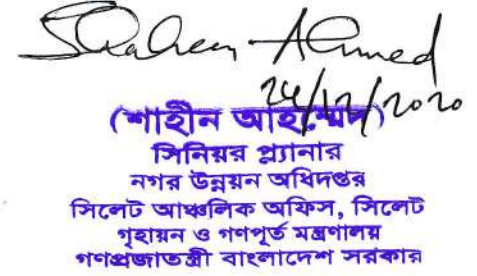 Shaheen Ahmed
24/12/2020
(শাহীন আহম্মেদ)
সিনিয়র প্ল্যানার
নগর উন্নয়ন অধিদপ্তর
সিলেট আঞ্চলিক অফিস, সিলেট
গৃহায়ন ও গণপূর্ত মন্ত্রণালয়
গণপ্রজাতন্ত্রী বাংলাদেশ সরকার